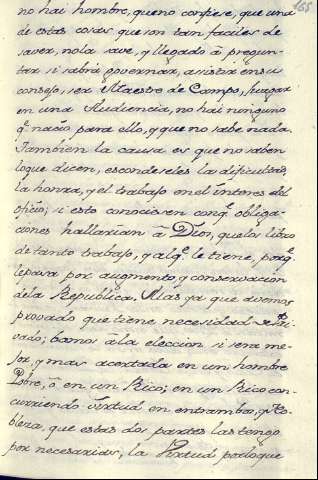 165
no hai hombre, que no confiese, que una
de estas cosas que son tan faciles de
saver, nola save, y llegado à pregun-
tar si sabrà governar, asistir ensu
consejo, ser Maestre de Campo, juzgar
en una Audiencia, no hai ninguno
q.e nacio para ello, y que no sabe nada.
Tambien la causa es que no saben
loque dicen, escondeseles la dificultad,
la honra, y el trabajo en el interes del
oficio; si esto conociesen con q.e obliga-
ciones hallarian à Dios, que los libro
de tanto trabajo, y al q.e le tiene, porq.e
lepasa por augmento, y conservacion
dela Republica. Mas ya que avemos
provado que tiene necesidad de Pri-
vado; bamos àla eleccion si sera me-
jor, y mas acertada en un hombre
Pobre, ò en un Rico; en un Rico con-
curriendo virtud en entrambos, y No-
bleza que estas dos partes las tengo
por necesarias, la Virtud porloque